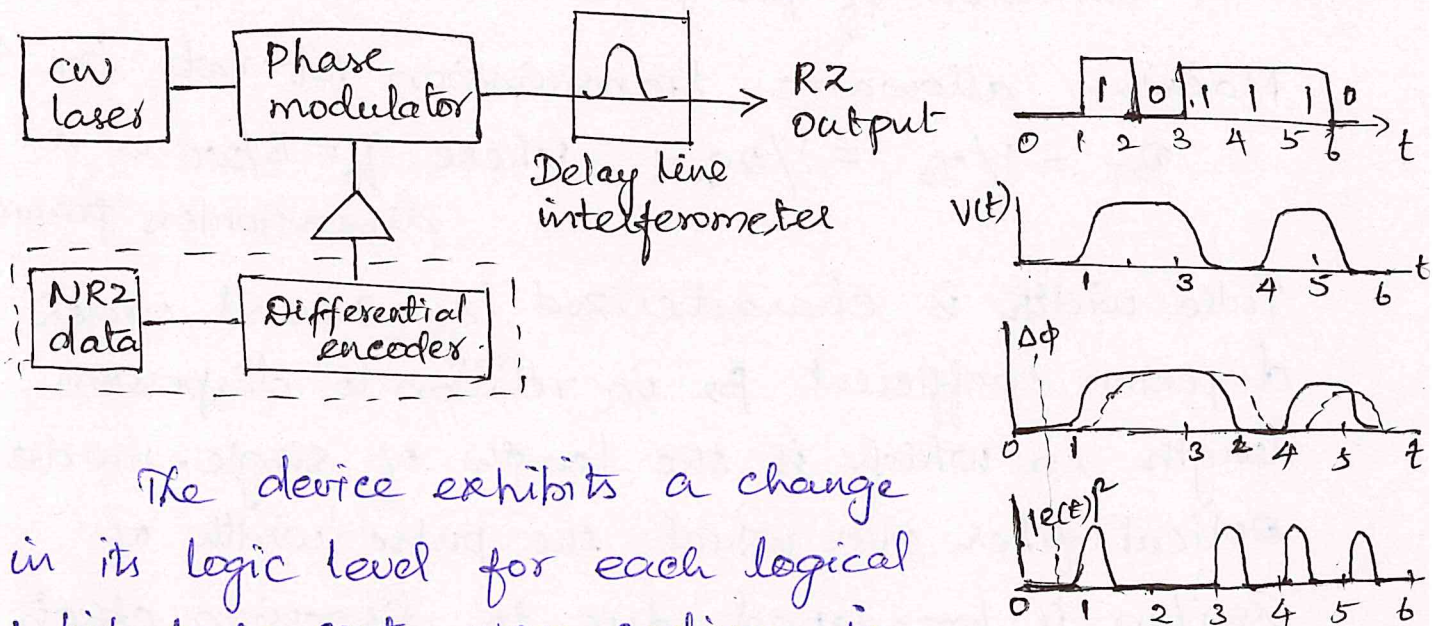 CW
laser
Phase
modulator
RZ
output
Delay line
interferometer
NRZ
data
Differential
encoder
1 0 1 1 1 0
0 1 2 3 4 5 6 t
V(t)
t
1 3 4 5 6
Δφ
0 1 3 2 4 5 t
|e(t)|²
0 1 2 3 4 5 6
The device exhibits a change
in its logic level for each logical